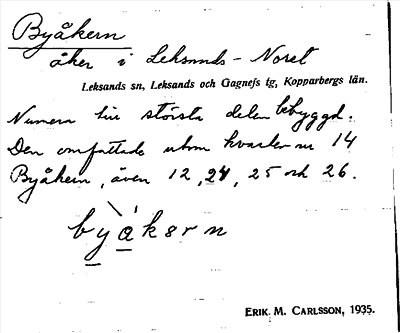 Byåkern
åker i Leksands-Noret
Leksands sn, Leksands och Gagnefs tg, Kopparbergs län.
Numera till största delen bebyggd.
Den omfattade utom kvarteren 14
Byåkern, även 12, 24, 25 och 26.
byakern
ERIK M. CARLSSON, 1935.